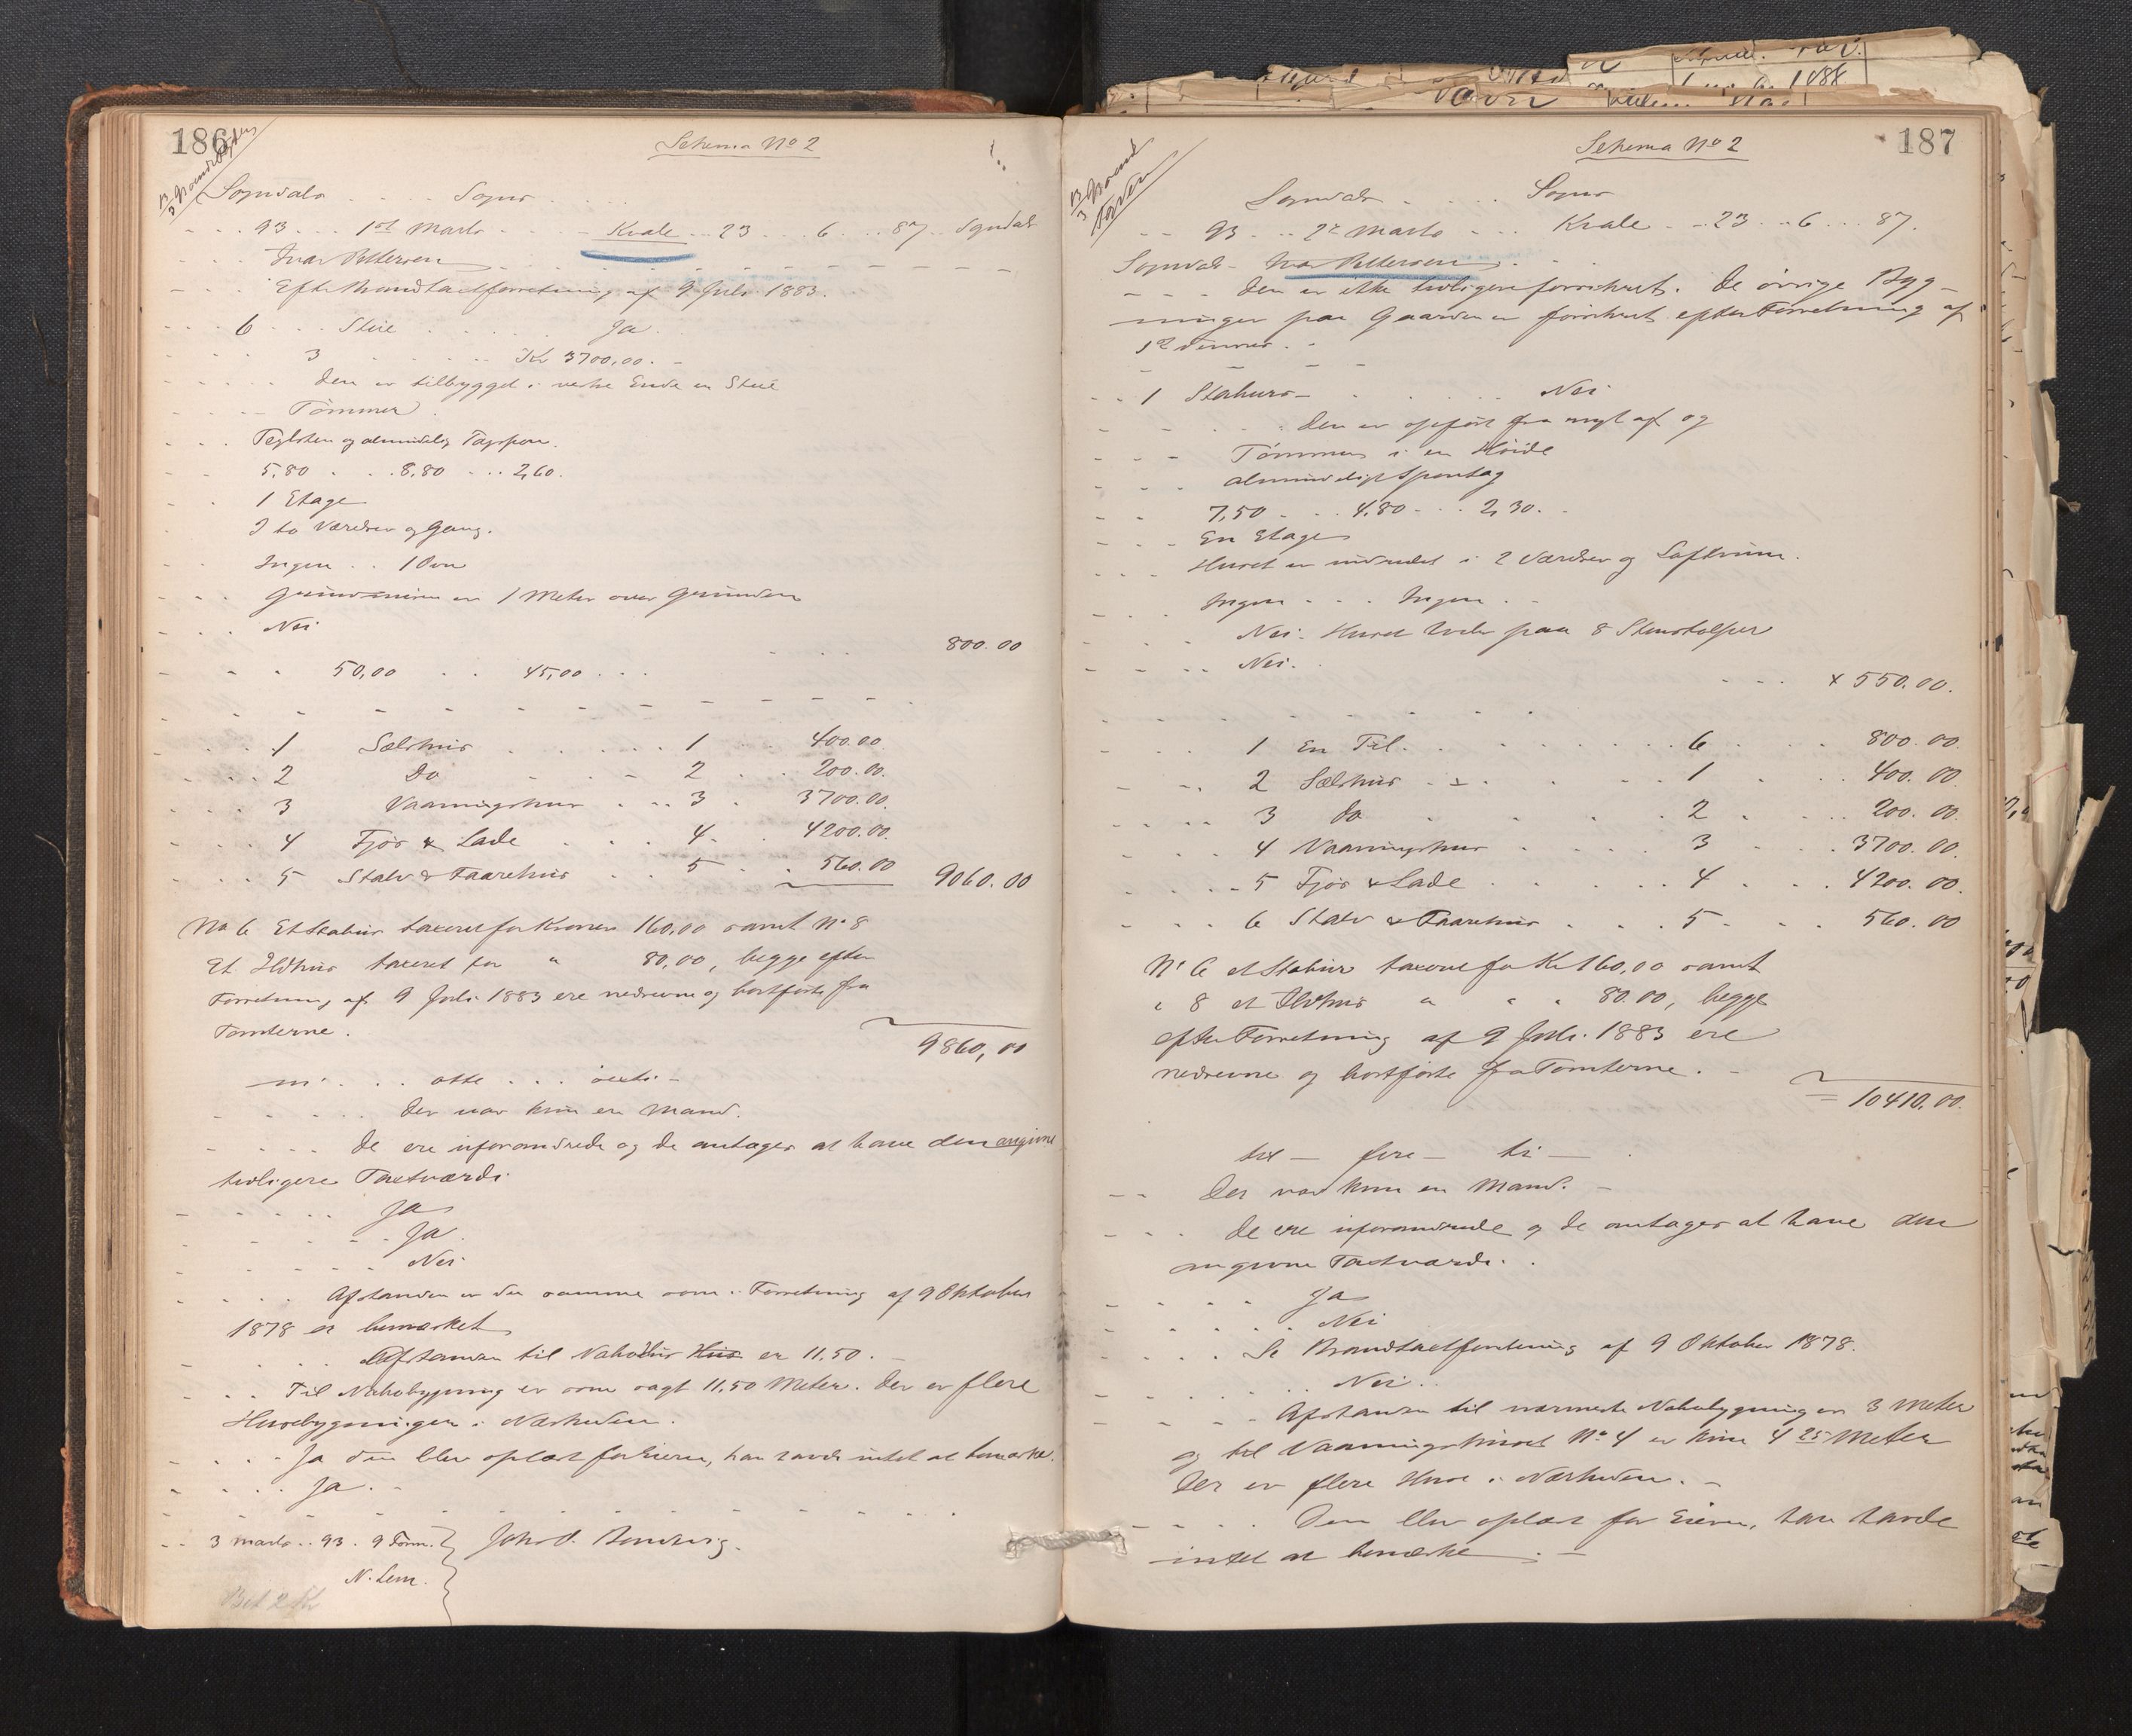 186
Schema No 2
Sogndals . . . . Sogns . . .
. . . 93 . . . 1st Marts . . . . Kvale . . 23 . . . 6 . . . 87 . . Sogndals
. . . Ivar Pettersen
. . . Efter Brandtaxtforretning af 9 Juli 1883.
. . . 6 . . . Stue . . . . . . Ja.
3 . . . . . . Kr 3700,00. -
. . . . . Den er tilbygget i vestre Ende en Stue
. . . . Tømmer.
. . . Teglsten og almindelig Tagspon.
. . 5,80 . . . 8,80 . . . 2,60.
. . 1 Etage
. . I to Værelser og Gang.
. . Ingen . . 1 Ovn
. . . Grundmuren er 1 Meter over Grunden
. . . Nei
. . . 800.00
. . . 50,00 . . . 45,00 . . .
. . . 1 Sælshus . . . . . 1 . . 400.00.
. . . 2 Do . . . 2 . . 200.00.
. . . 3 Vaaningshus . . . 3 . 3700.00.
. . . 4 Fjøs & Lade . . . 4 . . 4200.00.
. . . 5 Stald & Faarehus . . 5 . . 560.00 9060.00
No 6 Et Stabur taxeret for Kroner 160,00 samt No 8
Et Ildhus taxeret for " 80,00, begge efter
Forretning af 9 Juli 1883 ere nedrevne og bortførte fra
Tomterne.
9860,00
ni . . . otte . . . sexti -
. . . . . Der var kun en Mand.
. . . . De ere uforandrede og de antages at have den angivne
tidligere Taxtværdi.
. . . . . Ja
. . . . . Ja.
. . . . . Nei
. . . . Afstanden er den samme som i Forretning af 9 Oktober
1878 er bemærket
. . . . Afstanden til Nabohus Hus er 11,50. -
. . . Til Nabobygning er som sagt 11,50 Meter. Der er flere
Husebygninger i Nærheden.
. . . . Ja den blev oplæst for Eieren, han havde intet at bemærke.
. . . . Ja. -
. . 3 Marts . . 93 . 9 Form. } Johs. O.
N. Lem.
Bet 2 Kr
187
Schema No 2
Sogndals . . . . Sogns
. . 93 . . . 2n Marts . . . Kvale . . 23 . . 6 . . . 87.
Sogndals - Ivar Pettersen . .
. . . Den er ikke tidligere forsikret. De øvrige Byg-
ninger paa Gaarden er forsikret efter Forretning af
1ste dennes . -
. . 1 Stabur - . . . . . . Nei
. . . . . Den er opført fra nyt af og
. . . Tømmer i en Høide
. . . almindeligt Spontag
. . 7,50 . . . 4,80 . . . 2,30. .
. . . En Etage
. . . Huset er indredet i 2 Værelser og Loftrum.
. . . Ingen . . . Ingen . -
. . . . Nei. Huset hviler paa 8 Stenstolper
. . . . Nei. .
. . . x 550.00.
. . . 1 En Til. . . . . . . 6 . . . 800.00.
. . . 2 Sælshus . . . . . 1 . . . 400.00
. . . 3 do . . . . 2 . . . 200.00
. . . 4 Vaaningshus . . . . 3 . . . 3700.00.
. . . . 5 Fjøs & Lade . . . . . 4 . . . 4200.00.
. . . 6 Stald & Faarehus . . . 5 . . . 560.00
No 6 et Stabur taxeret for Kr 160,00 samt
" 8 et Ildhus " " " 80.00, begge
efter Forretning af 9 Juli 1883 ere
nedrevne og bortførte fra Tomterne. -
= 10410.00.
ti - fire - ti - .
. . Der var kun en Mand. -
. . . De ere uforandrede og de antages at have den
angivne Taxtværdi. .
. . . . Ja
. . . . . Nei
. . . . Se Brandtaxtforretning af 9 Oktober 1878.
. . . . . Nei. .
. . . . Afstanden til nærmeste Nabobygning er 3 Meter
og til Vaaningshuset No 4 er kun 4 25 Meter
Der er flere Huse i Nærheden. -
. . . . Den blev oplæst for Eieren, han havde
intet at bemærke . -